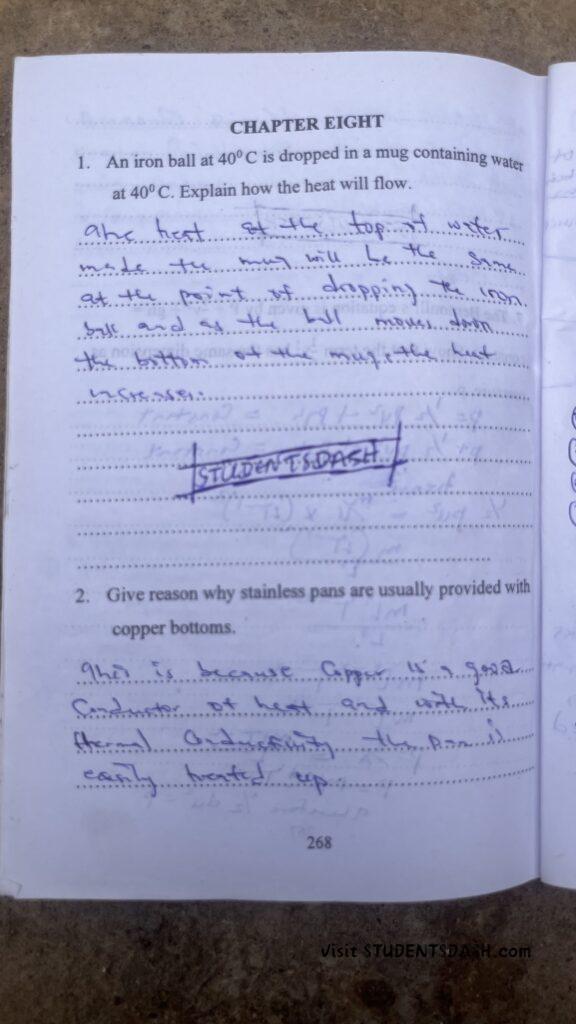 CHAPTER EIGHT
1. An iron ball at 40⁰ C is dropped in a mug containing water
at 40⁰ C. Explain how the heat will flow.
The heat at the top of water
made the mug will be the same
at the point of dropping the iron
ball and as the ball moves down
the bottom of the mug, the heat
increases.
STUDENTSDASH
2. Give reason why stainless pans are usually provided with
copper bottoms.
This is because Copper is a good
Conductor of heat and with its
thermal Conductivity the pan is
easily heated up.
268
Visit STUDENTSDASH.com